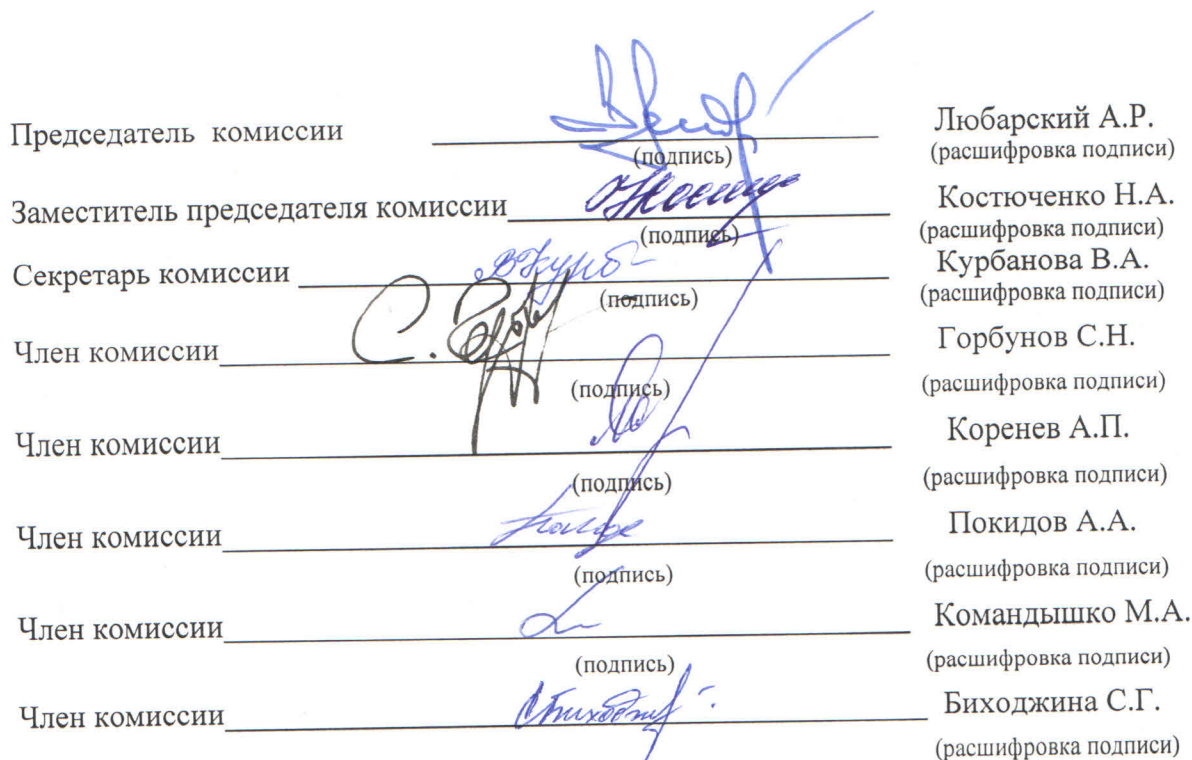 Председатель комиссии Любарский А.Р.
(подпись) (расшифровка подписи)
Заместитель председателя комиссии Костюченко Н.А.
(подпись) (расшифровка подписи)
Секретарь комиссии Курбанова В.А.
(подпись) (расшифровка подписи)
Член комиссии Горбунов С.Н.
(подпись) (расшифровка подписи)
Член комиссии Коренев А.П.
(подпись) (расшифровка подписи)
Член комиссии Покидов А.А.
(подпись) (расшифровка подписи)
Член комиссии Командышко М.А.
(подпись) (расшифровка подписи)
Член комиссии Биходжина С.Г.
(расшифровка подписи)